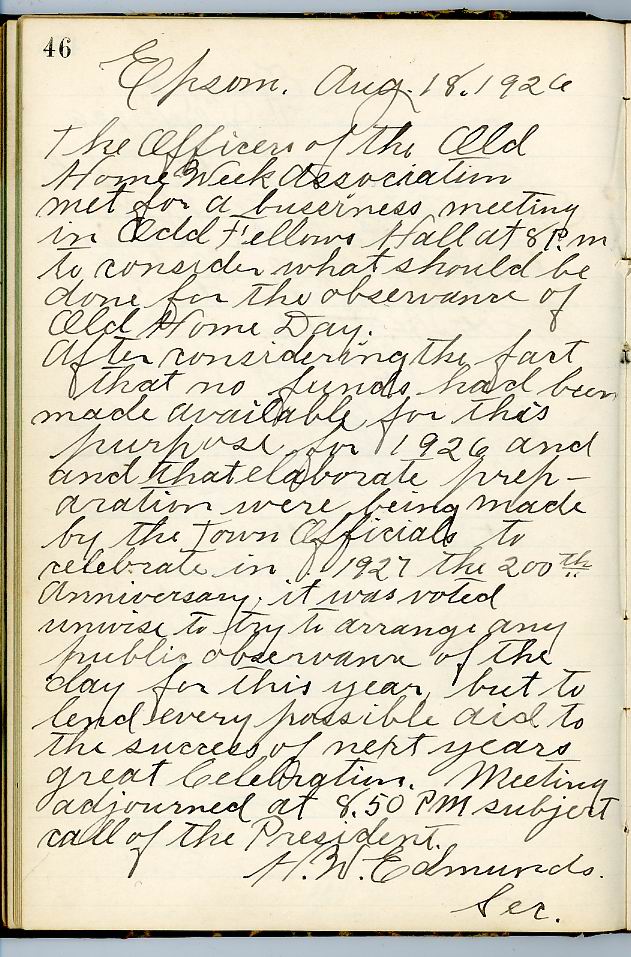 46
Epsom. Aug. 18. 1926
The Officers of the Old
Home Week Association
met for a bussiness meeting
in Odd Fellows Hall at 8 P.m
to consider what should be
done for the observance of
Old Home Day.
After considering the fact
that no funds had been
made available for this
purpose for 1926 and
and that elaborate prep-
aration were being made
by the Town Officials to
celebrate in 1927 the 200th
Anniversary, it was voted
unwise to try to arrange any
public observance of the
day for this year, but to
lend every possible aid to
the success of next years
great Celebration. Meeting
adjourned at 8.50 PM subject
call of the President.
H. W. Edmunds.
Sec.